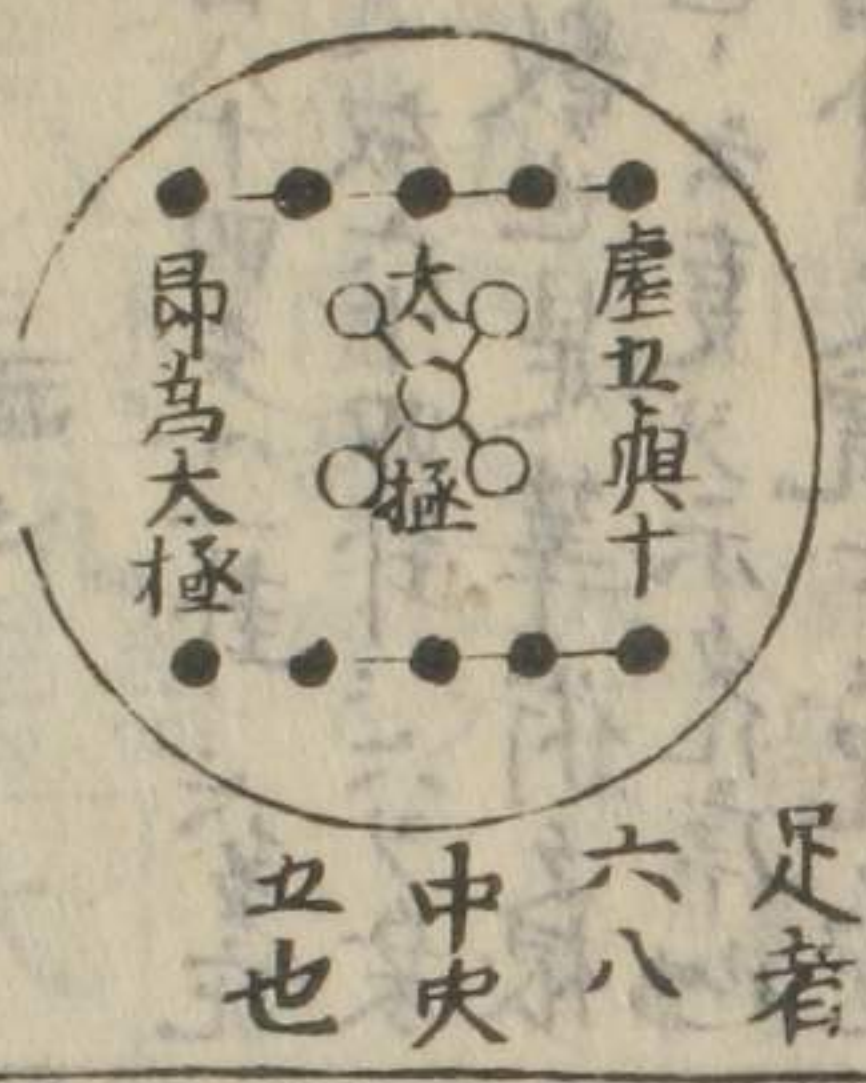 虛五與十
太極
即為太極
足者
六八
中央
五也